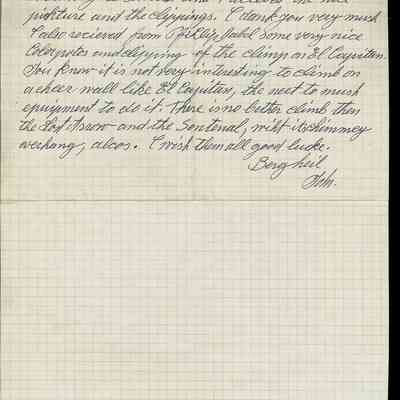 pickture and the clippings. I thank you very much
I also recieved from Isabel some very nice
Colorpotos and clipping of the climp on El Capitan.
You know it is not very interesting to climb on
a cheer wall like El Capitan, the nest to much
equipment to do it. There is no better climb then
the Lost Arrow and the Sentenal, witt its chimney
overhang, alcos. I wish them all good lucke.
Berg heil
John.